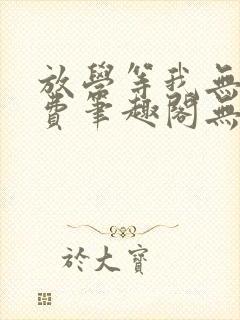 放學等我無
費筆趣閣無
於大寶